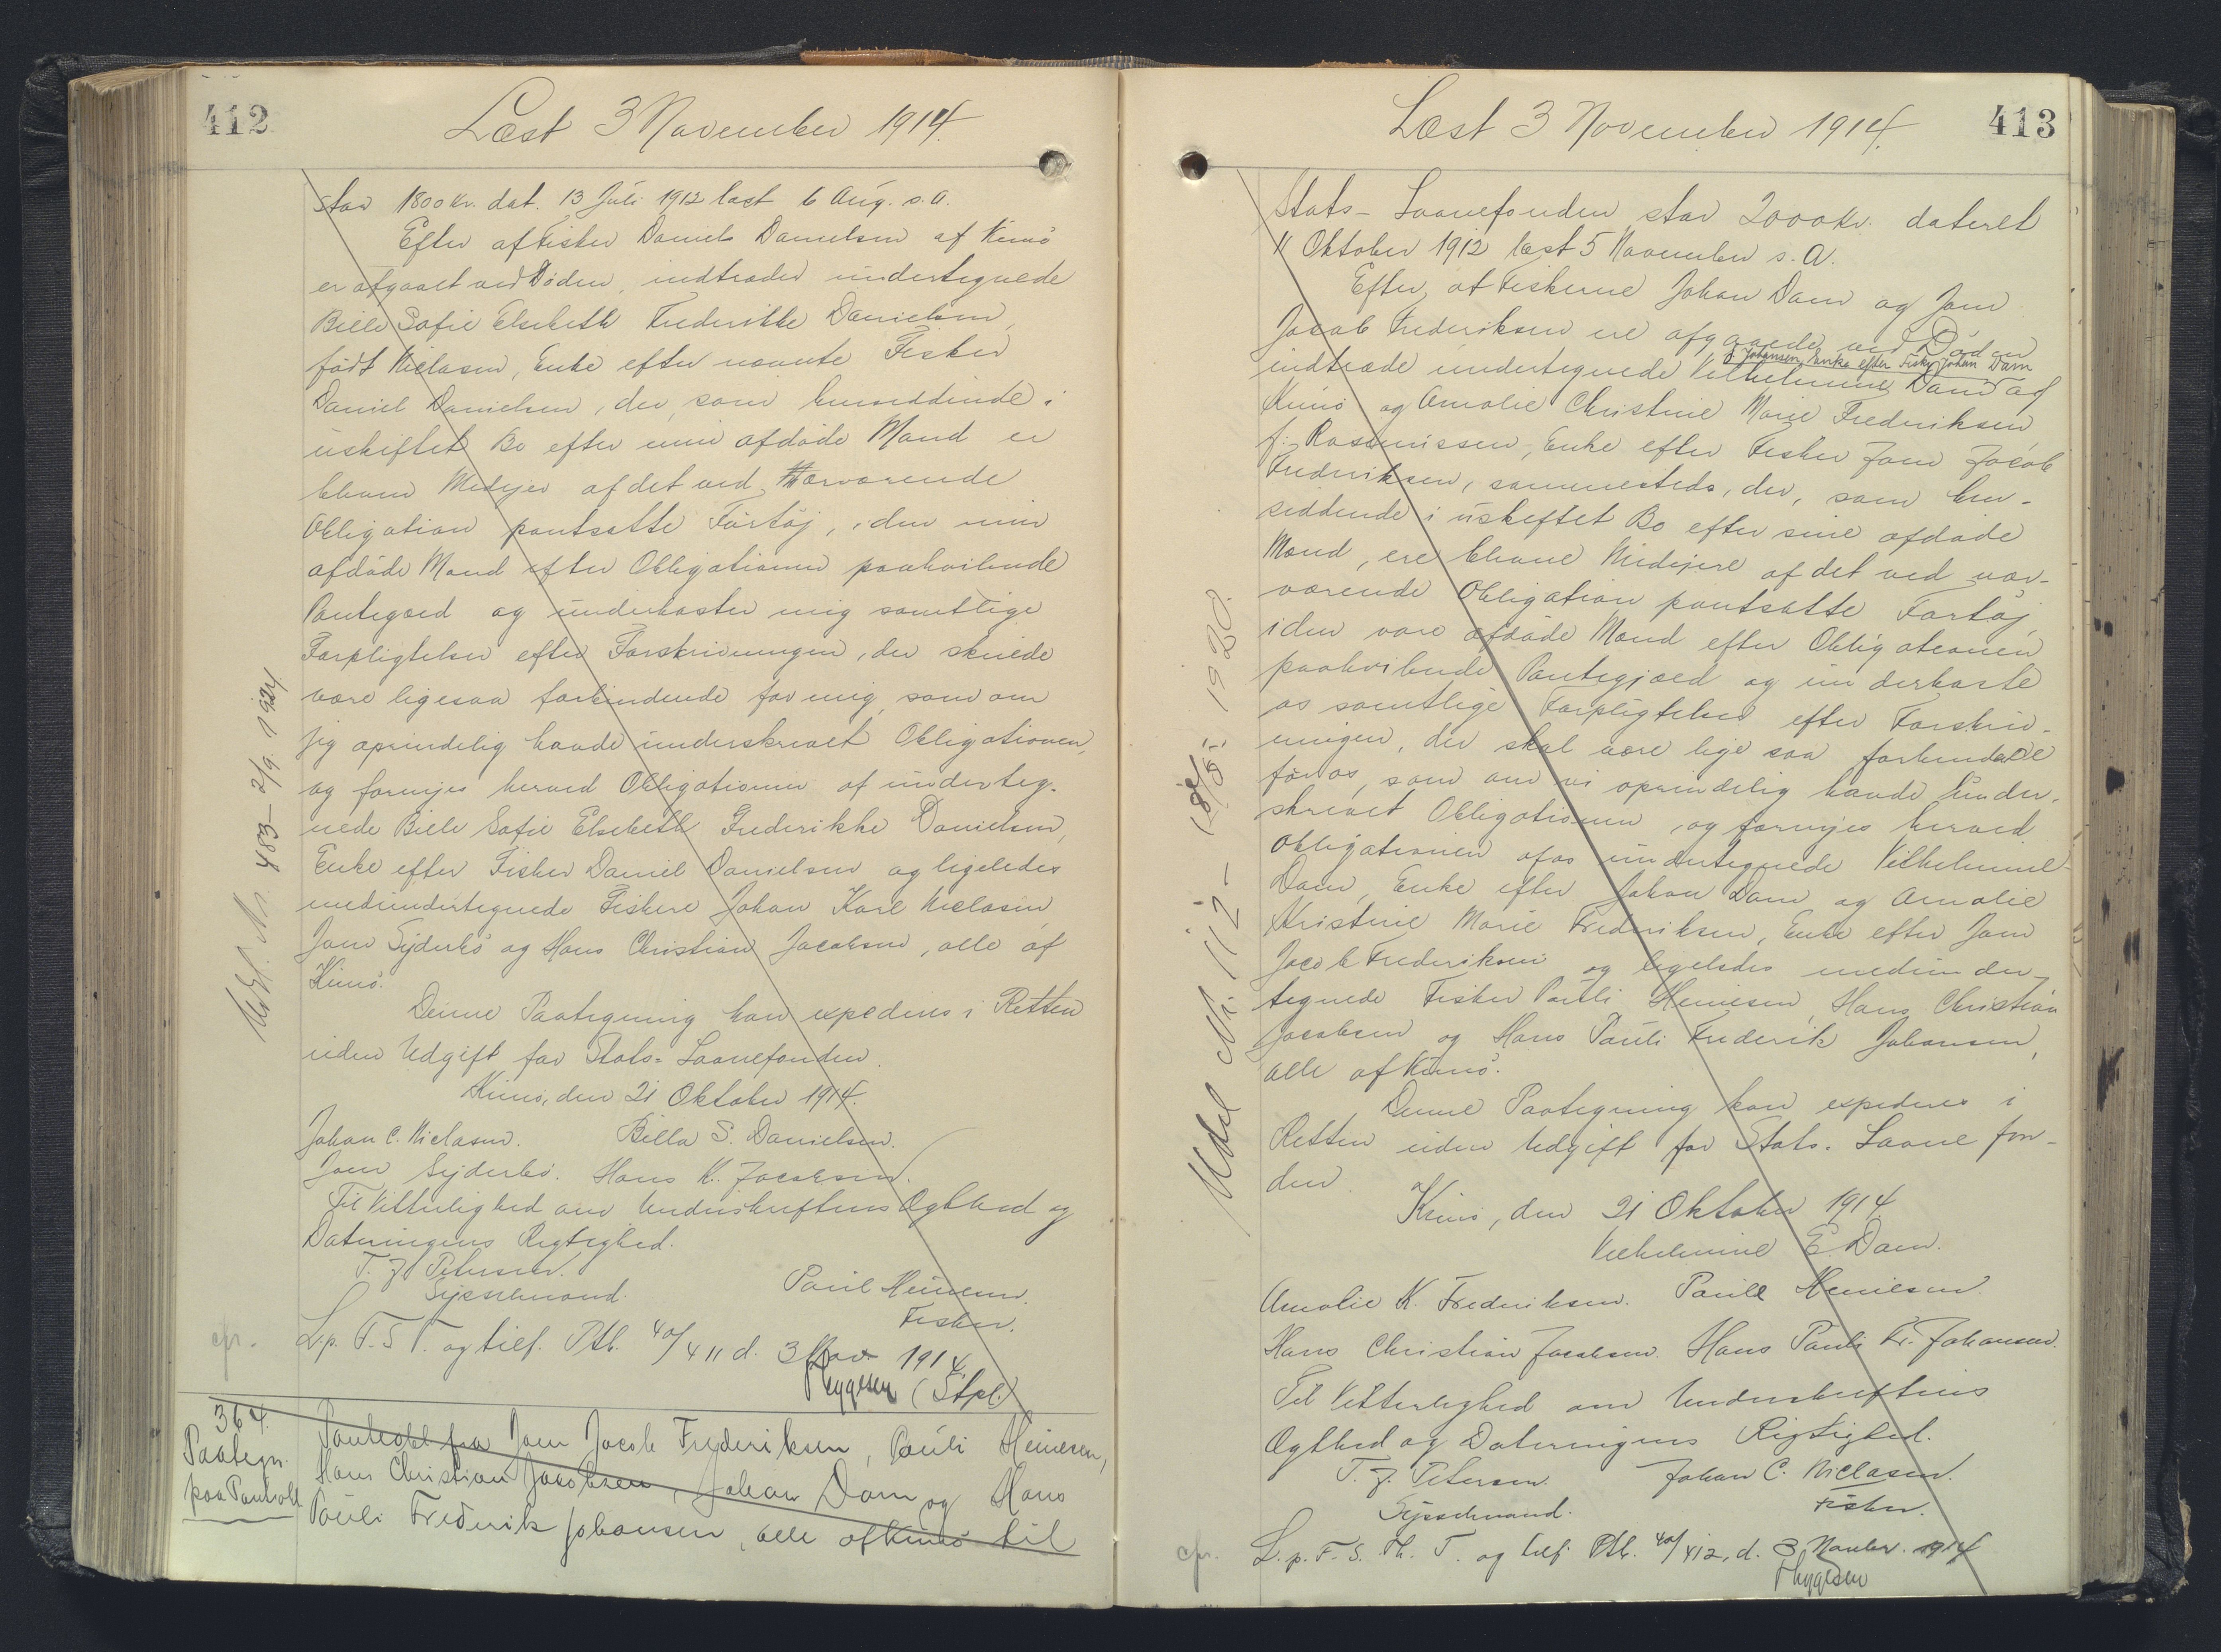 412
Læst 3 November 1914.
stor 1800 Kr. dat. 13 Juli 1912 læst 6 Aug. s. A.
Efter at Fisker Daniel Danielsen af Kunö
er afgaaet ved Döden, indtræder undertegnede
Bille Sofie Elsebeth Frederikke Danielsen,
födt Niclasen, Enke efter nævnte Fisker
Daniel Danielsen, der, som hensiddende i
uskiftet Bo efter min afdöde Mand er
bleven Medejer af det ved nærværende
Obligation pantsatte Fartöj, i den min
afdöde Mand efter Obligationen paahvilende
Pantegæld og underkaster mig samtlige
Forpligtelser efter Forskrivningen, der skulde
være ligesaa forbindende for mig, som om
jeg oprindelig havde underskrevet Obligationen,
og fornyes herved Obligationen af underteg-
nede Bille Sofie Elsebeth Frederikke Danielsen,
Enke efter Fisker Daniel Danielsen og ligeledes
medundertegnede Fiskere Johan Karl Niclasen
Joen Syderbö og Hans Christian Jacobsen, alle af
Kunö.
Denne Paategning kan expederes i Retten
uden Udgift for Stats-Laanefonden.
Kunö, den 21 Oktober 1914.
Johan C. Niclasen. Billa S. Danielsen.
Joen Syderbö. Hans K. Jacobsen.
Til Vitterlighed om Underskriftens Ægthed og
Dateringens Rigtighed.
T. J. Petersen. Poul Heinesen.
Sysselmand. Fisker.
cfr. L. p. F. S. T. og tilf. Ptb. 40/411 d. 3 Nov 1914.
Thygesen (Stpl.)
Udsl. Nr. 483 - 2/9 1924.
364.
Paategn.
paa Pantobl.
Pantobl fra Joen Jacob Frederiksen, Pauli Heinesen,
Hans Christian Jacobsen, Johan Dam og Hans
Pauli Frederik Johansen, alle af Kunö til
413
Læst 3 November 1914.
Stats-Laanefonden stor 2000 Kr. dateret
11 Oktober 1912 læst 5 November s. A.
Efter, at Fiskerne Johan Dam og Joen
Jacob Frederiksen ere afgaaede ved Döden
f. Johansen, Enke efter Fisker Johan Dam
indtræde undertegnede Vilhelmine Dam af
Kunö og Amalie Christine Marie Fredriksen,
f. Rasmussen, Enke efter Fisker Joen Jacob
Fredriksen, sammesteds, der, som hen-
siddende i uskiftet Bo efter sine afdöde
Mænd, ere blevne Medejere af det ved nær-
værende Obligation pantsatte Fartöj,
i den vore afdöde Mænd efter Obligationen
paahvilende Pantegjæld og underkaste
os samtlige Forpligtelser efter Forskriv-
ningen, der skal være lige saa forbindende
for os, som om vi oprindelig havde under-
skrevet Obligationen, og fornyes herved
Obligationen af os undertegnede Vilhelmine
Dam, Enke efter Johan Dam og Amalie
Kristine Marie Fredriksen, Enke efter Joen
Jacob Frederiksen og ligeledes medunder-
tegnede Fisker Pauli Heinesen, Hans Christian
Jacobsen og Hans Pauli Frederik Johansen,
alle af Kunö.
Denne Paategning kan expederes i
Retten uden Udgift for Stats-Laanefon-
den.
Kunö, den 21 Oktober 1914
Vilhelmine E. Dam.
Amalie K. Fredriksen. Paull Heinesen.
Hans Christian Jacobsen. Hans Pauli Fr. Johansen.
Til Vitterlighed om Underskriftens
Ægthed og Dateringens Rigtighed.
T. J. Petersen. Johan C. Niclasen.
Sysselmand. Fisker.
cfr. L. p. F. S. Th. T. og tilf. Ptb. 40/412, d. 3 Novbr. 1914
Thygesen
Udsl Nr. 112 - 18/5 1920.